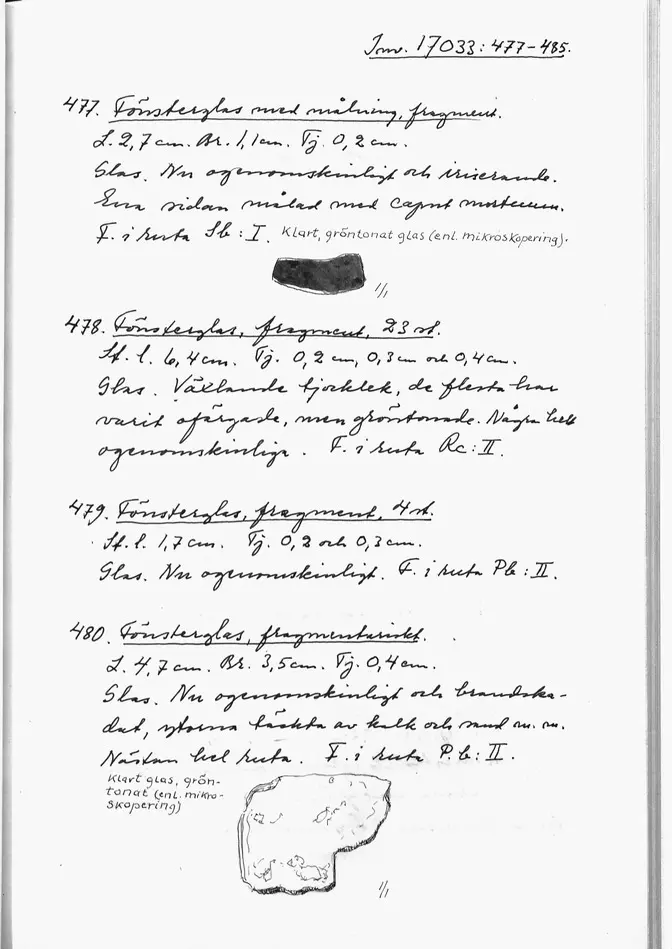 Inv. 17033:477-485.
477. Fönsterglas med målning, fragment.
L. 2,7 cm. Br. 1,1 cm. Tj. 0,2 cm.
Glas. Nu ogenomskinligt och iriserande.
Ena sidan målad med caput mortuum.
F. i ruta Sb:I. Klart, gröntonat glas (enl. mikroskopering).
1/1
478. Fönsterglas, fragment, 23 st.
St. l. 6,4 cm. Tj. 0,2 cm, 0,3 cm och 0,4 cm.
Glas. Växlande tjocklek, de flesta har
varit ofärgade, men gröntonade. Några helt
ogenomskinliga. F. i ruta Rc:II.
479. Fönsterglas, fragment, 4 st.
St. l. 1,7 cm. Tj. 0,2 och 0,3 cm.
Glas. Nu ogenomskinligt. F. i ruta Pb:II.
480. Fönsterglas, fragmentariskt.
L. 4,7 cm. Br. 3,5 cm. Tj. 0,4 cm.
Glas. Nu ogenomskinligt och brandska-
dat, ytorna täckta av kalk och sand m. m.
Nästan hel ruta. F. i ruta P.b:II.
Klart glas, grön-
tonat (enl. mikro-
skopering)
1/1